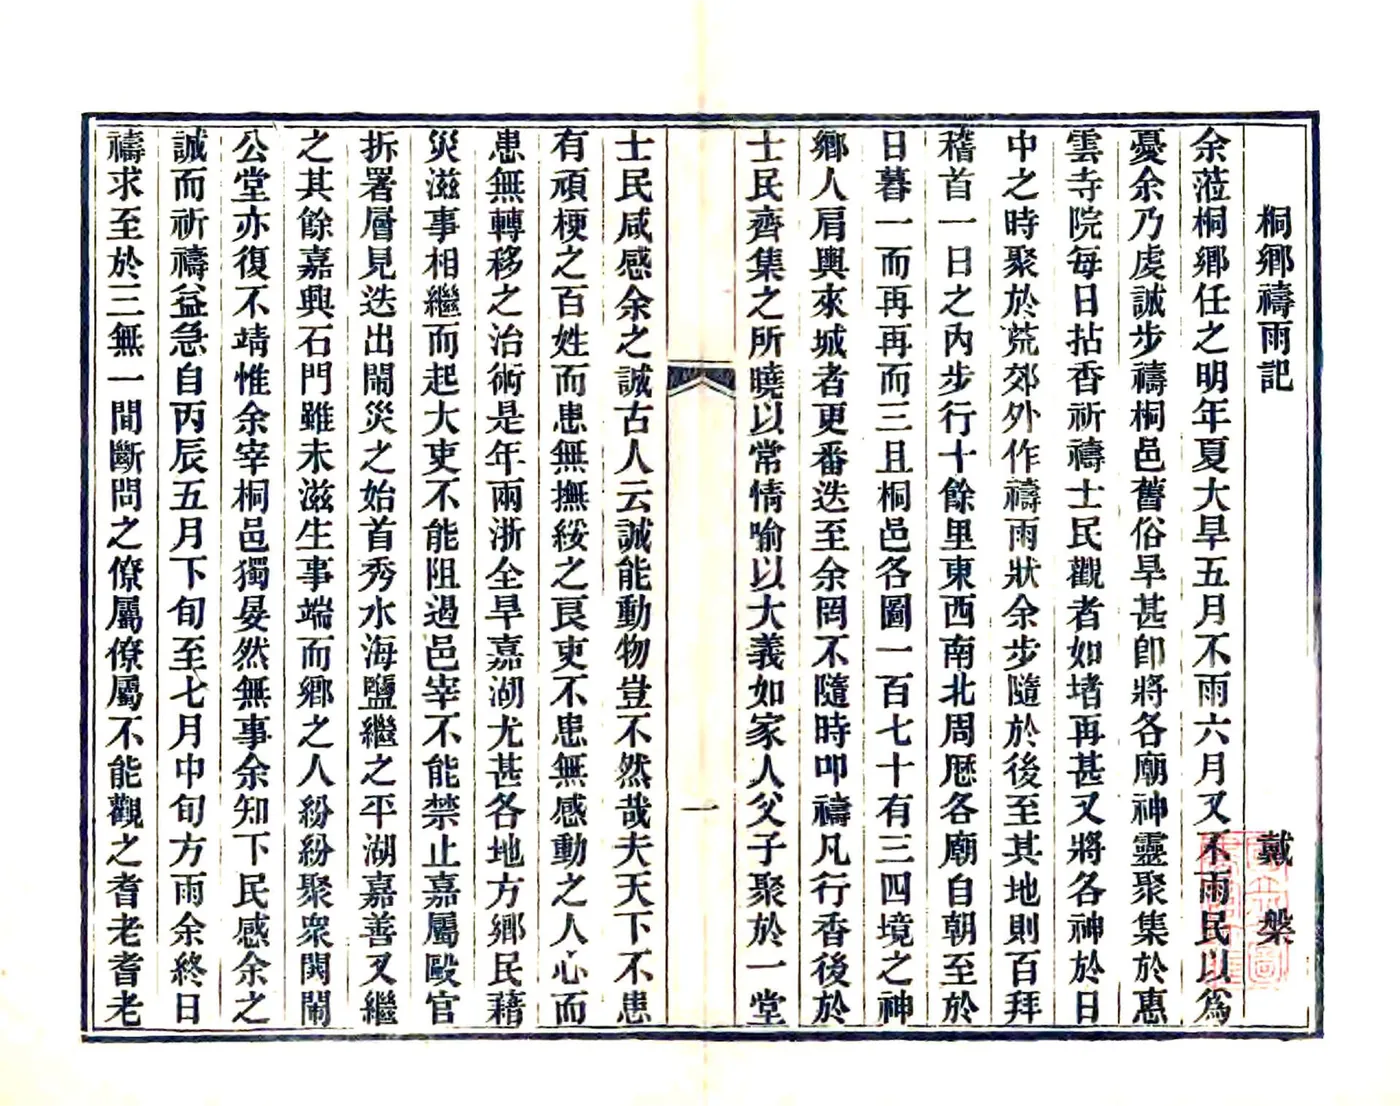 桐鄉禱雨記
戴槃
余蒞桐鄉任之明年夏大旱五月不雨六月又不雨民以爲
憂余乃虔誠步禱桐邑舊俗旱甚卽將各廟神靈聚集於惠
雲寺院每日拈香祈禱士民觀者如堵再甚又將各神於日
中之時聚於荒郊外作禱雨狀余步隨於後至其地則百拜
稽首一日之內步行十餘里東西南北周厯各廟自朝至於
日暮一而再再而三且桐邑各圖一百七十有三四境之神
鄉人肩輿來城者更番迭至余罔不隨時叩禱凡行香後於
士民齊集之所曉以常情喻以大義如家人父子聚於一堂
士民咸感余之誠古人云誠能動物豈不然哉夫天下不患
有頑梗之百姓而患無撫綏之良吏不患無感動之人心而
患無轉移之治術是年兩浙全旱嘉湖尤甚各地方鄉民藉
災滋事相繼而起大吏不能阻過邑宰不能禁止嘉屬毆官
拆署層見迭出鬧災之始首秀水海鹽繼之平湖嘉善又繼
之其餘嘉興石門雖未滋生事端而鄉之人紛紛聚衆鬨鬧
公堂亦復不靖惟余宰桐邑獨晏然無事余知下民感余之
誠而祈禱益急自丙辰五月下旬至七月中旬方雨余終日
禱求至於三無一間斷問之僚屬僚屬不能觀之耆老耆老
一